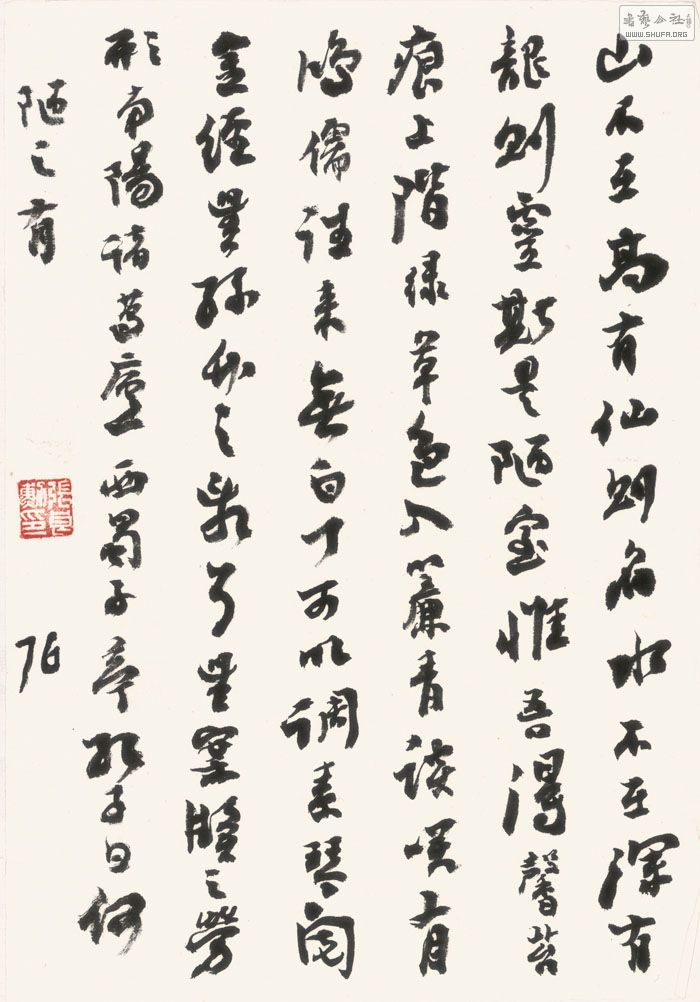 山不在高有仙則名水不在深有
龍則靈斯是陋室惟吾得馨苔
痕上階緑草色入簾青談咲有
鴻儒往来無白丁可以調素琴閲
金經無絲竹之乱耳無案牘之勞
形南陽諸葛廬西蜀子亭孔子曰何
陋之有
76
張良勳印
書藝公社
WWW.SHUFA.ORG